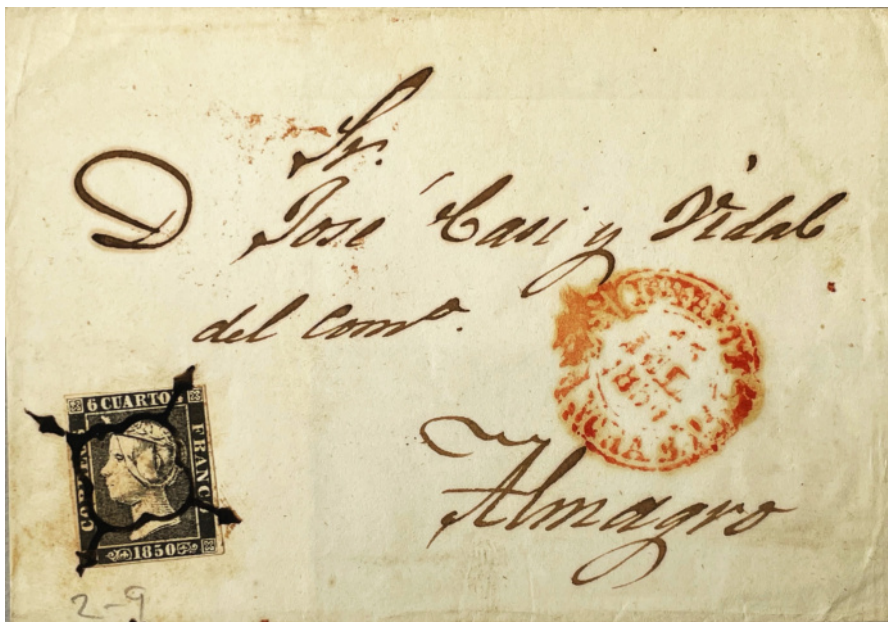 Sr.
D José Casi y Vidal
del Com°.
Almagro
6 CUARTOS
CORREOS
FRANCO
1850
2-9